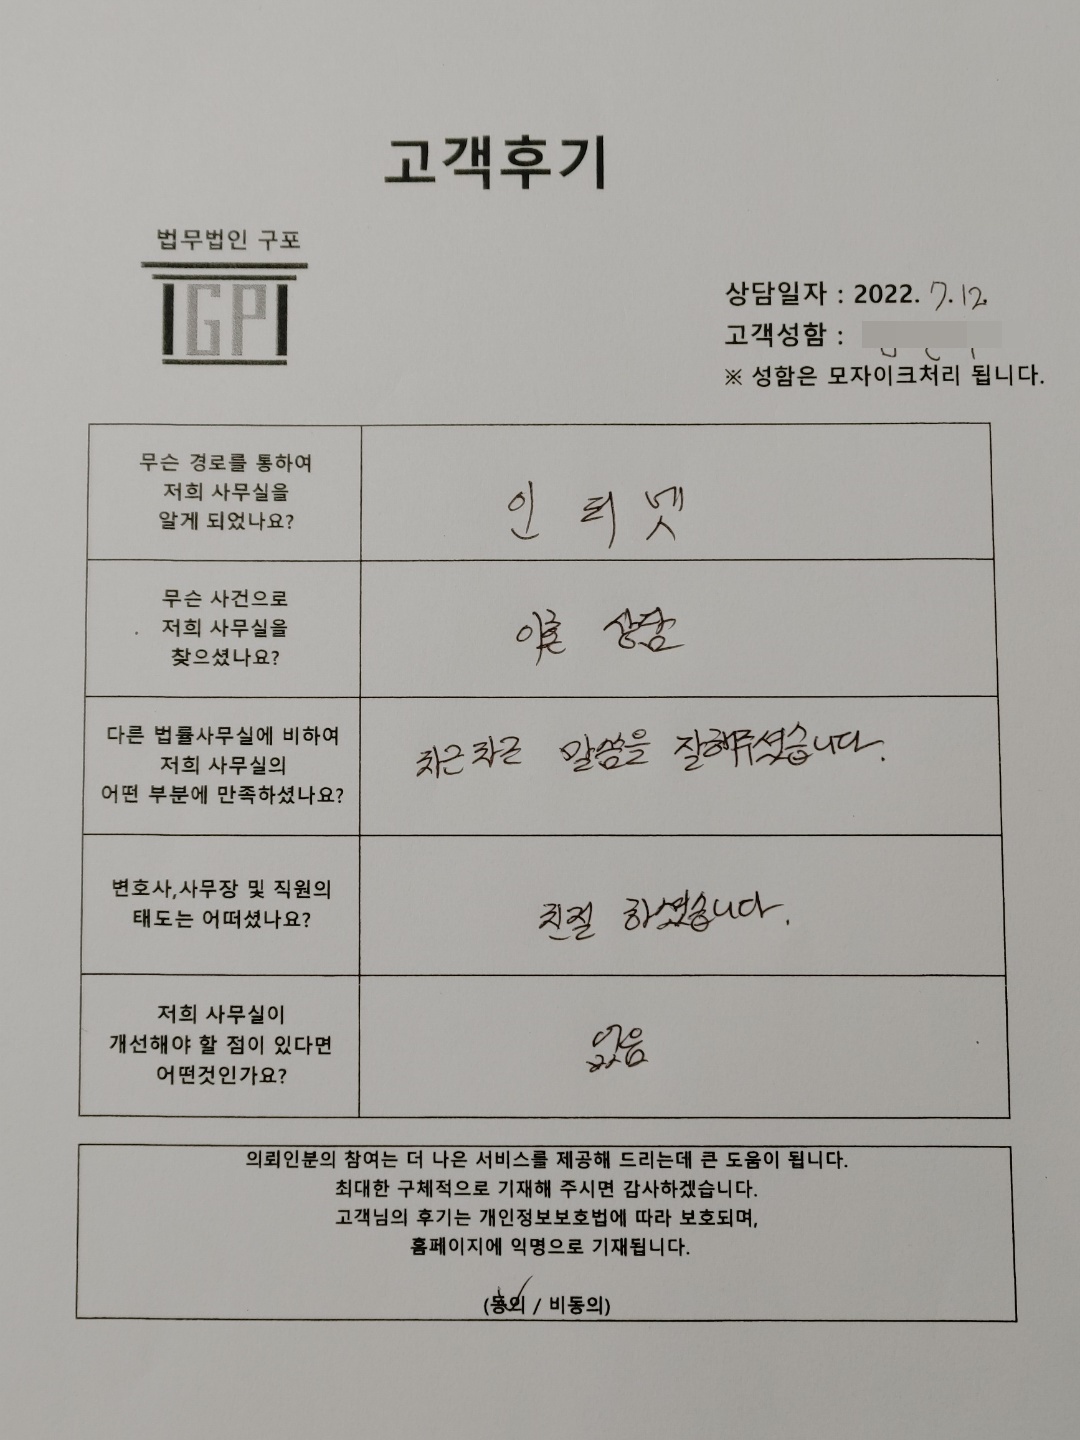 고객후기
법무법인 구포
GP
상담일자 : 2022. 7. 12.
고객성함 :
※ 성함은 모자이크처리 됩니다.
무슨 경로를 통하여
저희 사무실을
알게 되었나요?
인터넷
무슨 사건으로
저희 사무실을
찾으셨나요?
이혼 상담
다른 법률사무실에 비하여
저희 사무실의
어떤 부분에 만족하셨나요?
차근차근 말씀을 잘해주셨습니다.
변호사,사무장 및 직원의
태도는 어떠셨나요?
친절 하셨습니다.
저희 사무실이
개선해야 할 점이 있다면
어떤것인가요?
없음
의뢰인분의 참여는 더 나은 서비스를 제공해 드리는데 큰 도움이 됩니다.
최대한 구체적으로 기재해 주시면 감사하겠습니다.
고객님의 후기는 개인정보보호법에 따라 보호되며,
홈페이지에 익명으로 기재됩니다.
(동의 / 비동의)